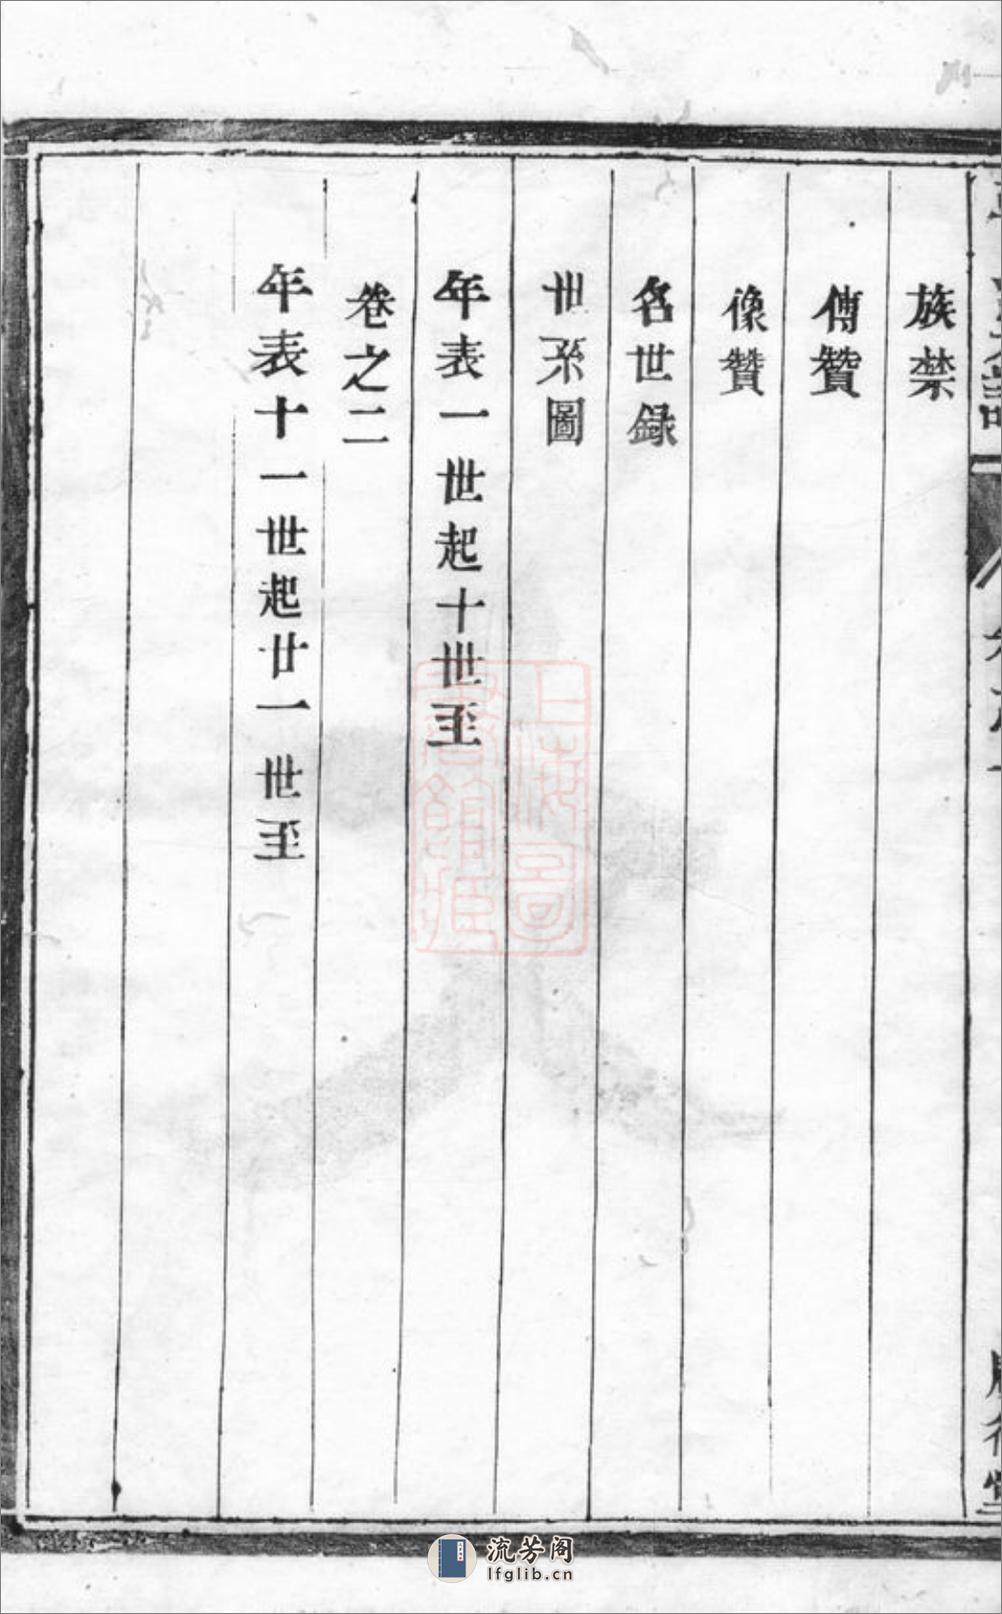 族禁
傳贊
像贊
名世録
世系圖
年表一世起十世至
卷之二
年表十一世起廿一世至
上海圖書館藏
流芳阁
lfglib.cn